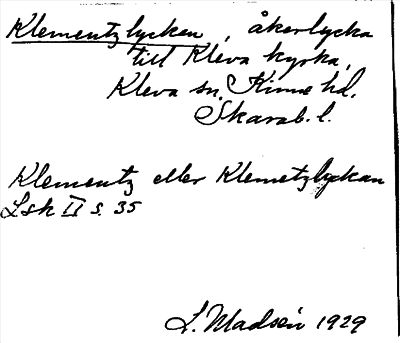 Klementzlyckan, åkerlycka
till Kleva kyrka,
Kleva sn. Kinne hd.
Skarab. l.
Klementz eller Klemetzlyckan
Lsk II s. 35
L. Madsén 1929